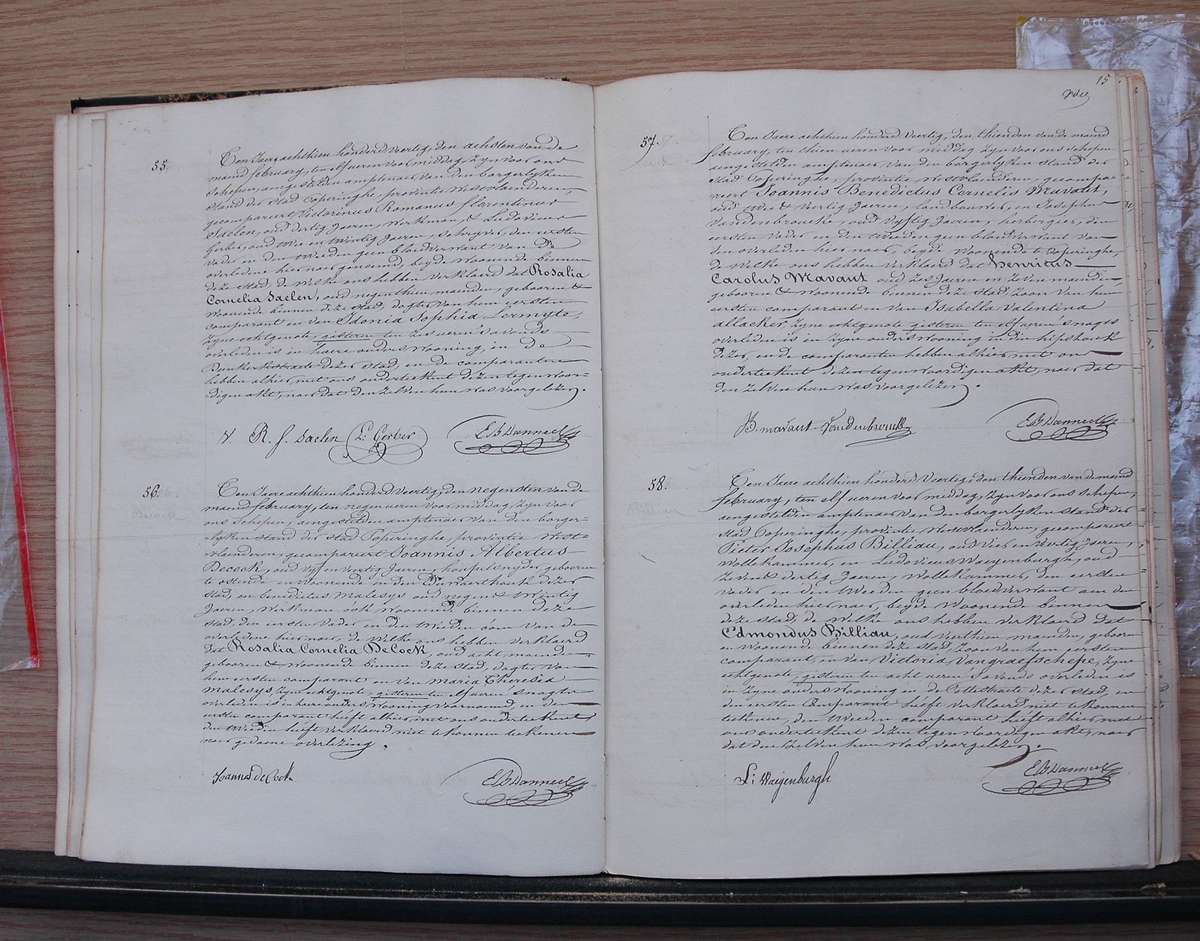 55.
Ten Jaere achthien honderd veertig, den achsten van de
maand february, ten elf ueren voormiddag, zyn voor ons
schepen, aengestelden amptenaer van den borgerlyken
stand der stad Poperinghe, provintie Westvlaenderen,
gecompareert Victorinus Romanus florentinus
Saelen, oud dertig Jaeren, Werkman, & Ludovicus
Gerber, oud drie en twintig Jaeren, den eersten
vader en den tweeden geen bloedverwant van de
overledene hier naer genoemd, beyde woonende binnen
deze stad, de welke ons hebben verklaerd dat Rosalia
Cornelia Saelen, oud negenthien maenden, gebooren &
woonende binnen deze stad, dogter van hem eersten
comparant en van Idonia Sophia Lermyte,
zyne echtgenote, gisteren ten zes ueren s'avonds
overleden is in haere ouders wooning, in de
dezer stad, en de comparanten
hebben alhier met ons onderteekent dezen tegenwoor-
digen akt, naer dat den zelven hun was voorgelezen.
V. R. f. Saelen L: Gerber E B Danneel
56.
Ten Jaere achthien honderd veertig, den negensten van de
maand february, ten negen ueren voormiddag, zyn voor
ons schepen, aengestelden amptenaer van den borger-
lyken stand der stad Poperinghe, provintie West-
vlaenderen, gecompareert Joannis Albertus
Decock, oud vyf en veertig Jaeren, gebooren
te ostende en woonende in den dezer
stad, en benedictus Malesys oud negen & twintig
Jaeren, Werkman ook woonende binnen deze
stad, den eersten vader en den tweeden oom van de
overledene hier naer, de welke ons hebben verklaerd
dat Rosalia Cornelia DeCock, oud acht maenden
gebooren & woonende binnen deze stad, dogter van
hem eersten comparant en van Maria Theresia
Malesys, zyne echtgenote, gisteren ten elf ueren snagts
overleden is in huer ouders wooning voornoemd en den
eersten comparant heeft alhier met ons onderteekent
den tweeden heeft verklaerd niet te konnen teekenen
naer gedaene voorlezing.
Joannes de Cock E B Danneel
15
57.
Ten Jaere achthien honderd veertig, den thienden van de maand
february, ten thien ueren voor middag, zyn voor ons schepen
aengestelden amptenaer van den borgerlyken stand der
stad Poperinghe, provintie Westvlaenderen, gecompa-
reert Joannis Benedictus Cornelis Mavaut,
oud drie & veertig Jaeren, landbouwer, en Josephus
Vandenbroucke oud vyftig Jaeren, herbergier, den
eersten vader en den tweeden geen bloedverwant van
den overleden hier naer, beyde woonende te Poperinghe,
de welke ons hebben verklaerd dat Henricus
Carolus Mavaut oud zes Jaeren en zeven maenden
gebooren & woonende binnen deze stad, zoon van hem
eersten comparant en van Isabella Valentina
allacker, zyne echtgenote gisteren ten elf ueren snagts
overleden is in zyne ouders wooning in den hipshoek
dezer, en de comparanten hebben alhier met ons
onderteekent dezen tegenwoordigen akt, naer dat
den zelven hun was voorgelezen.
JB mavaut Vandenbroucke E B Danneel
58.
Ten Jaere achthien honderd veertig, den thienden van de maand
february, ten elf ueren voor middag, zyn voor ons schepen,
aengestelden amptenaer van den borgerlyken stand der
stad Poperinghe, provintie Westvlaenderen, gecompareert
Pieter Josephus Billiau, oud vier en veertig Jaeren,
Wollekammer, en Ludovicus Weigenburgh, oud
zeven & dertig Jaeren, Wollekammer, den eersten
vader en den tweeden geen bloedverwant aen den
overleden hier naer, beyde woonende binnen
deze stad, de welke ons hebben verklaerd dat
Edmondus Billiau, oud veerthien maenden, gebooren
en woonende binnen deze stad, zoon van hem eersten
comparant en van Victoria Vangraefschepe, zyne
echtgenote, gisteren ten acht ueren s'avonds overleden is
in zyne ouders wooning in de dezer stad, en
den eersten comparant heeft verklaerd niet te konnen
teekenen, den tweeden comparant heeft alhier met
ons onderteekent dezen tegenwoordigen akt, naer
dat den zelven hun was voorgelezen.
L: Waigenburgh E B Danneel